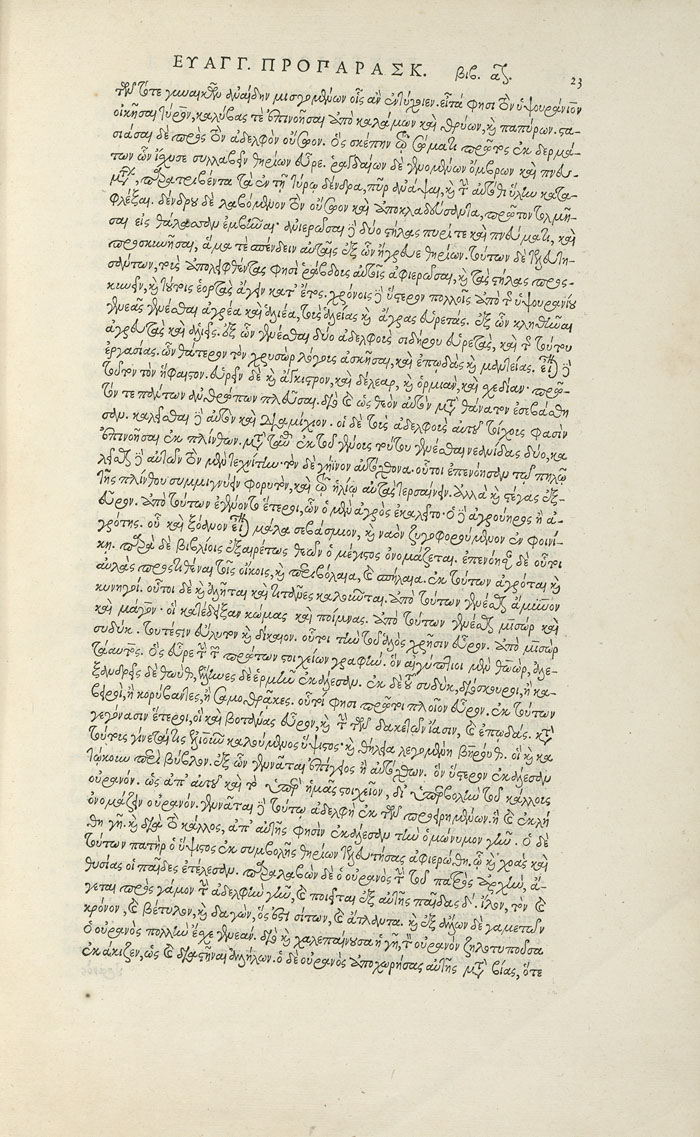 ΕΥΑΓΓ. ΠΡΟΠΑΡΑΣΚ. βιβ. α. 23
τῶν τότε γυναικῶν ἀναίδην μισγομένων οἷς ἂν ἐντύχοιεν. εἶτά φησι τὸν ὑψουράνιον
οἰκῆσαι τύρον, καλύβας τε ἐπινοῆσαι ἀπὸ καλάμων καὶ θρύων, καὶ παπύρων. στα-
σιάσαι δὲ πρὸς τὸν ἀδελφὸν οὔσωον. ὃς σκέπην τῷ σώματι πρῶτος ἐκ δερμά-
των ὧν ἴσχυσε συλλαβεῖν θηρίων εὗρε. ῥαγδαίων δὲ γενομένων ὄμβρων καὶ πνευ-
μάτων, παρατριβέντα τὰ ἐν τῇ τύρῳ δένδρα, πῦρ ἀνάψαι, καὶ τὴν αὐτόθι ὕλην κατα-
φλέξαι. δένδρου δὲ λαβόμενον τὸν οὔσωον καὶ ἀποκλαδεύσαντα, πρῶτον τολμῆ-
σαι εἰς θάλασσαν ἐμβῆναι· ἀνιερῶσαι δὲ δύο στήλας πυρί τε καὶ πνεύματι, καὶ
προσκυνῆσαι, ἅμα τε σπένδειν αὐταῖς ἐξ ὧν ἤγρευε θηρίων. τούτων δὲ τελευτη-
σάντων, τοὺς ἀπολειφθέντας φησὶ ῥάβδους αὐτοῖς ἀφιερῶσαι, καὶ τὰς στήλας προς-
κυνεῖν, καὶ τούτοις ἑορτὰς ἄγειν κατ' ἔτος. χρόνοις δὲ ὕστερον πολλοῖς ἀπὸ τῆς ὑψουρανίου
γενεᾶς γενέσθαι ἀγρέα καὶ ἁλιέα, τοὺς ἁλείας καὶ ἄγρας εὑρετάς. ἐξ ὧν κληθῆναι
ἀγρευτὰς καὶ ἁλιεῖς. ἐξ ὧν γενέσθαι δύο ἀδελφοὺς σιδήρου εὑρετὰς, καὶ τῆς τούτου
ἐργασίας. ὧν θάτερον τὸν χρυσὼρ λόγους ἀσκῆσαι, καὶ ἐπῳδὰς καὶ μαντείας. εἶναι δὲ
τοῦτον τὸν ἥφαιστον. εὑρεῖν δὲ καὶ ἄγκιστρον, καὶ δέλεαρ, καὶ ὁρμιὰν, καὶ σχεδίαν· πρῶ-
τόν τε πάντων ἀνθρώπων πλεῦσαι. διὸ καὶ ὡς θεὸν αὐτὸν μετὰ θάνατον ἐσεβάσθη
σαν. καλεῖσθαι δὲ αὐτὸν καὶ διαμίχιον. οἱ δὲ τοὺς ἀδελφοὺς αὐτοῦ τοίχους φασὶν
ἐπινοῆσαι ἐκ πλίνθων. μετὰ ταῦτα ἐκ τοῦ γένους τούτου γενέσθαι νεανίδας δύο, κα
λεῖσθαι δὲ αὐτῶν τὸν μὲν τεχνίτην. τὸν δὲ γήϊνον αὐτόχθονα. οὗτοι ἐπενόησαν τῷ πηλῷ
τῆς πλίνθου συμμιγνύειν φορυτὸν, καὶ τῷ ἡλίῳ αὐτὰς τερσαίνειν. ἀλλὰ καὶ στέγας ἐξ-
εῦρον. ἀπὸ τούτων ἐγένοντο ἕτεροι, ὧν ὁ μὲν ἀγρὸς ἐκαλεῖτο· ὁ δὲ ἀγρούηρος ἢ ἀ-
γρότης. οὗ καὶ ξόανον εἶναι μάλα σεβάσμιον, καὶ ναὸν ζυγοφορούμενον ἐν φοινί-
κῃ. παρὰ δὲ βιβλίοις ἐξαιρέτως θεῶν ὁ μέγιστος ὀνομάζεται. ἐπενόησαν δὲ οὗτοι
αὐλὰς προςτιθέναι τοῖς οἴκοις, καὶ περιβόλαια, καὶ σπήλαια. ἐκ τούτων ἀγρόται καὶ
κυνηγοί. οὗτοι δὲ καὶ ἀλῆται καὶ τιτᾶνες καλοῦνται. ἀπὸ τούτων γενέσθαι ἄμυνον
καὶ μάγον· οἳ κατέδειξαν κώμας καὶ ποίμνας. ἀπὸ τούτων γενέσθαι μισὼρ καὶ
συδύκ. τουτέστιν εὔλυτον καὶ δίκαιον. οὗτοι τὴν τοῦ ἁλὸς χρῆσιν εὗρον. ἀπὸ μισὼρ
τάαυτος. ὃς εὗρε τὴν τῶν πρώτων στοιχείων γραφήν. ὃν αἰγύπτιοι μὲν θωὼρ, ἀλε-
ξανδρεῖς δὲ θωὺθ, ἕλληνες δὲ ἑρμῆν ἐκάλεσαν. ἐκ δὲ τοῦ συδύκ, διόσκουροι, ἢ κά-
βειροι, ἢ κορύβαντες, ἢ σαμοθρᾷκες. οὗτοί φησι πρῶτοι πλοῖον εὗρον. ἐκ τούτων
γεγόνασιν ἕτεροι, οἳ καὶ βοτάνας εὗρον, καὶ τὴν τῶν δακετῶν ἴασιν, καὶ ἐπῳδάς. κατὰ
τούτους γίνεταί τις ἐλιοῦν καλούμενος ὕψιστος· καὶ θήλεια λεγομένη βηρούθ. οἳ καὶ κα
τῴκουν περὶ βύβλον. ἐξ ὧν γεννᾶται ἐπίγειος ἢ αὐτόχθων. ὃν ὕστερον ἐκάλεσαν
οὐρανόν. ὡς ἀπ' αὐτοῦ καὶ τὸ ὑπὲρ ἡμᾶς στοιχεῖον, δι' ὑπερβολὴν τοῦ κάλλους
ὀνομάζειν οὐρανόν. γεννᾶται δὲ τούτῳ ἀδελφὴ ἐκ τῶν προειρημένων. ἣ καὶ ἐκλή
θη γῆ. καὶ διὰ τὸ κάλλος, ἀπ' αὐτῆς φησὶν ἐκάλεσαν τὴν ὁμώνυμον γῆν. ὁ δὲ
τούτων πατὴρ ὁ ὕψιστος ἐκ συμβολῆς θηρίων τελευτήσας ἀφιερώθη. ᾧ καὶ χοὰς καὶ
θυσίας οἱ παῖδες ἐτέλεσαν. παραλαβὼν δὲ ὁ οὐρανὸς τὴν τοῦ πατρὸς ἀρχὴν, ἄ-
γεται πρὸς γάμον τὴν ἀδελφὴν γῆν, καὶ ποιεῖται ἐξ αὐτῆς παῖδας δ'. ἶλον, τὸν καὶ
κρόνον, καὶ βέτυλον, καὶ δαγὼν, ὅς ἐστι σίτων, καὶ ἄτλαντα. καὶ ἐξ ἄλλων δὲ γαμετῶν
ὁ οὐρανὸς πολλὴν ἔσχε γενεάν. διὸ καὶ χαλεπαίνουσα ἡ γῆ, τὸν οὐρανὸν ζηλοτυποῦσα
ἐκάκιζεν, ὡς καὶ διαστῆναι ἀλλήλων. ὁ δὲ οὐρανὸς ἀποχωρήσας αὐτῆς μετὰ βίας, ὅτε